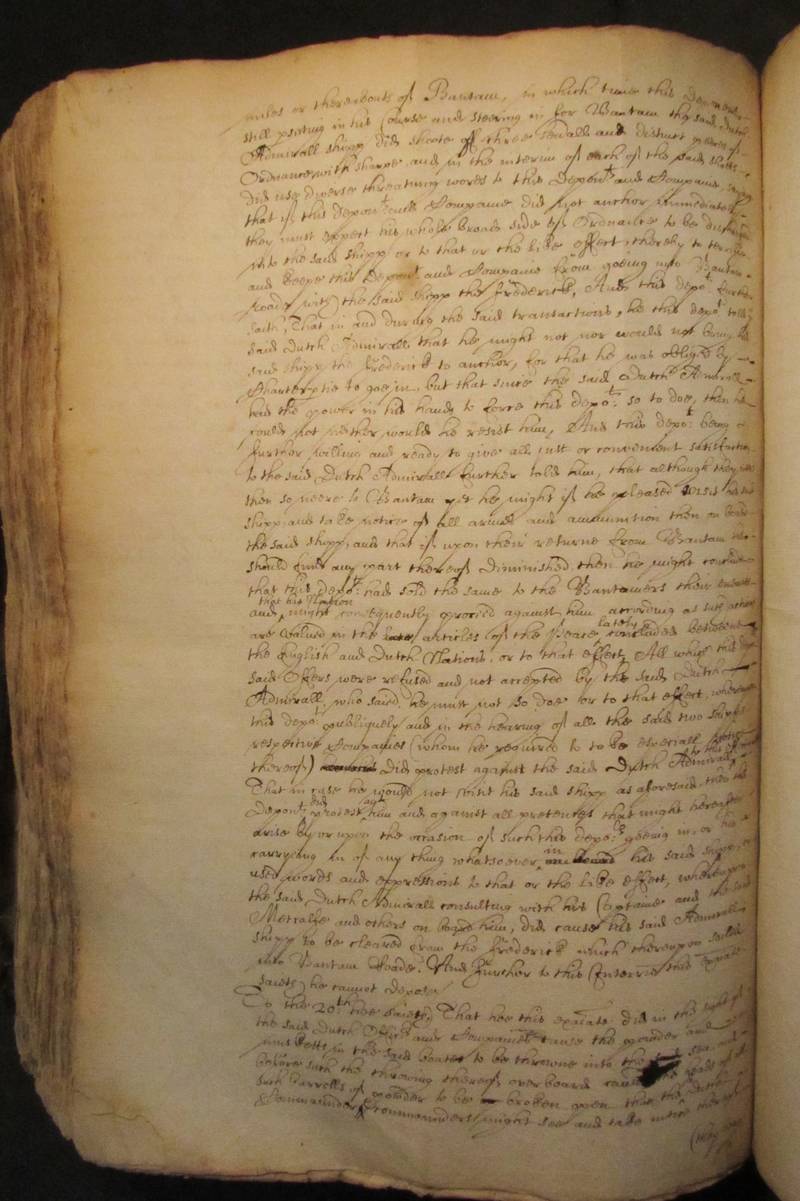 miles or thereabouts of Bantam, in which time this Deponent
still psisting in his course and steering in for Bantam the said Dutch
Admirall shipp did shoote off three severall and distinct peeces of
Ordnance with sharpe and in the interim of each of the said shotts
did use diverse threatning words to this Depont. and Companie
that if this Depont. and Companie did not anchor immediately
they must expect his whole broad side of Ordnance to be discharged
into the said shipp or to that or the like effect, thereby to
and keepe this Depont. and Companie from goeing into Bantam
roade with the said shipp the Frederick, And this depot. further
saith, That in and during the said transactions, he this depot. told
said Dutch Admirall that he might not nor would not bring his
said shipp the Frederick to anchor, for that he was obliged by
Charterptie to goe in, but that since the said Dutch Admirall
had the power in his hands to force this depot. so to doe, then he
could not neither would he resist him, And this depot. being
further willing and ready to give all just or convenient satisfaction
to the said Dutch Admirall further told him, that although they were
then so neere to Bantam yet he might if he pleased visit his said
shipp, and take notice of all armes and amunition then on board
the said shipp, and that if upon their returne from Bantam they
should find any part thereof diminished then he might conclude
that this depot. had sold the same to the Bantamers their enemies
and that his Nation might consequently proceed against him according as such actions
are valued in the articles of the Peace lately concluded betweene
the English and Dutch Nations, or to that effect, All which this
said Offers were refused and not accepted by the said Dutch
Admirall, who saied, he must not so doe or to that effect, whereupon
this depot. publiquely and in the hearing of all the said two shipps
respective Companies (whom he required to to be especiall
thereof) did protest against the said Dutch Admirall
That in case he would not visit his said shipp as aforesaid, then this
Depont. did protest agt. him and against all pretences that might hereafter
arise by or upon the occasion of such his depots. goeing in, or his
carrying in of any thing whatsoever in his said shipp, or
used words and expressions to that or the like effect, whereupon
the said Dutch Admirall consulting with his Captaine and the said
Metcalfe and others on board him, did cause his said Admirall
shipp to be cleared from the Frederick which thereupon sailed
into Bantam Roade. And further to this Interrie this
saieth he cannot depose
To the 20th. hee saieth, That hee this examte. did in the sight of
the said Dutch Officrs. and Companie cause the powder and
musketts in the said boate to be throwne into the sea, and
before such the throwing thereof over board caused the heads of
such barrells of powder to be broken open that the Dutch
Commander & Commanders might see and take notice thereof